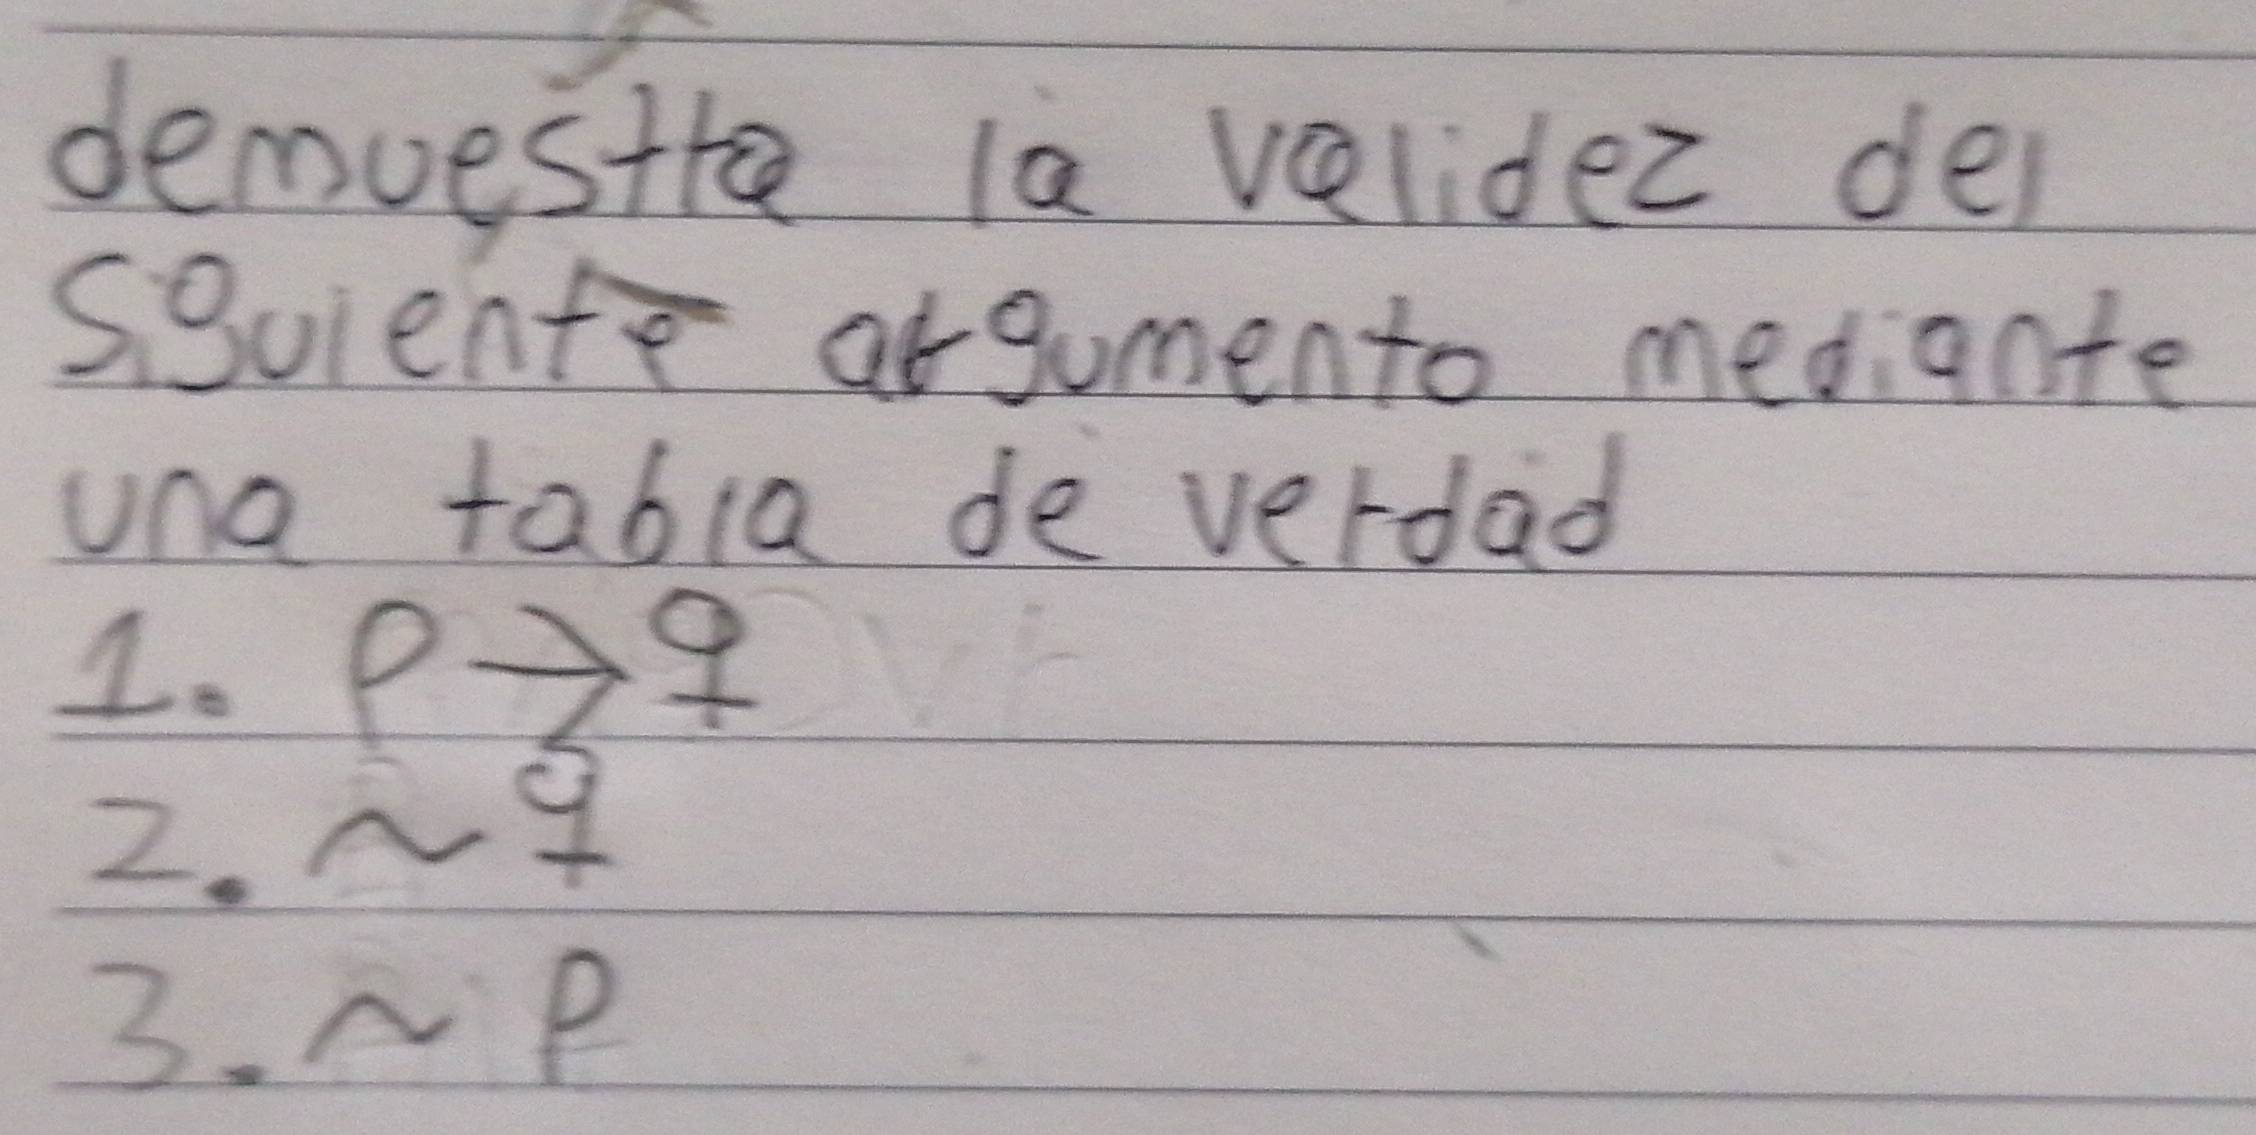 demuestra la validez del
siguiente argumento mediante
una tabla de verdad
1. p → q
2. ~ q
3. ~ p